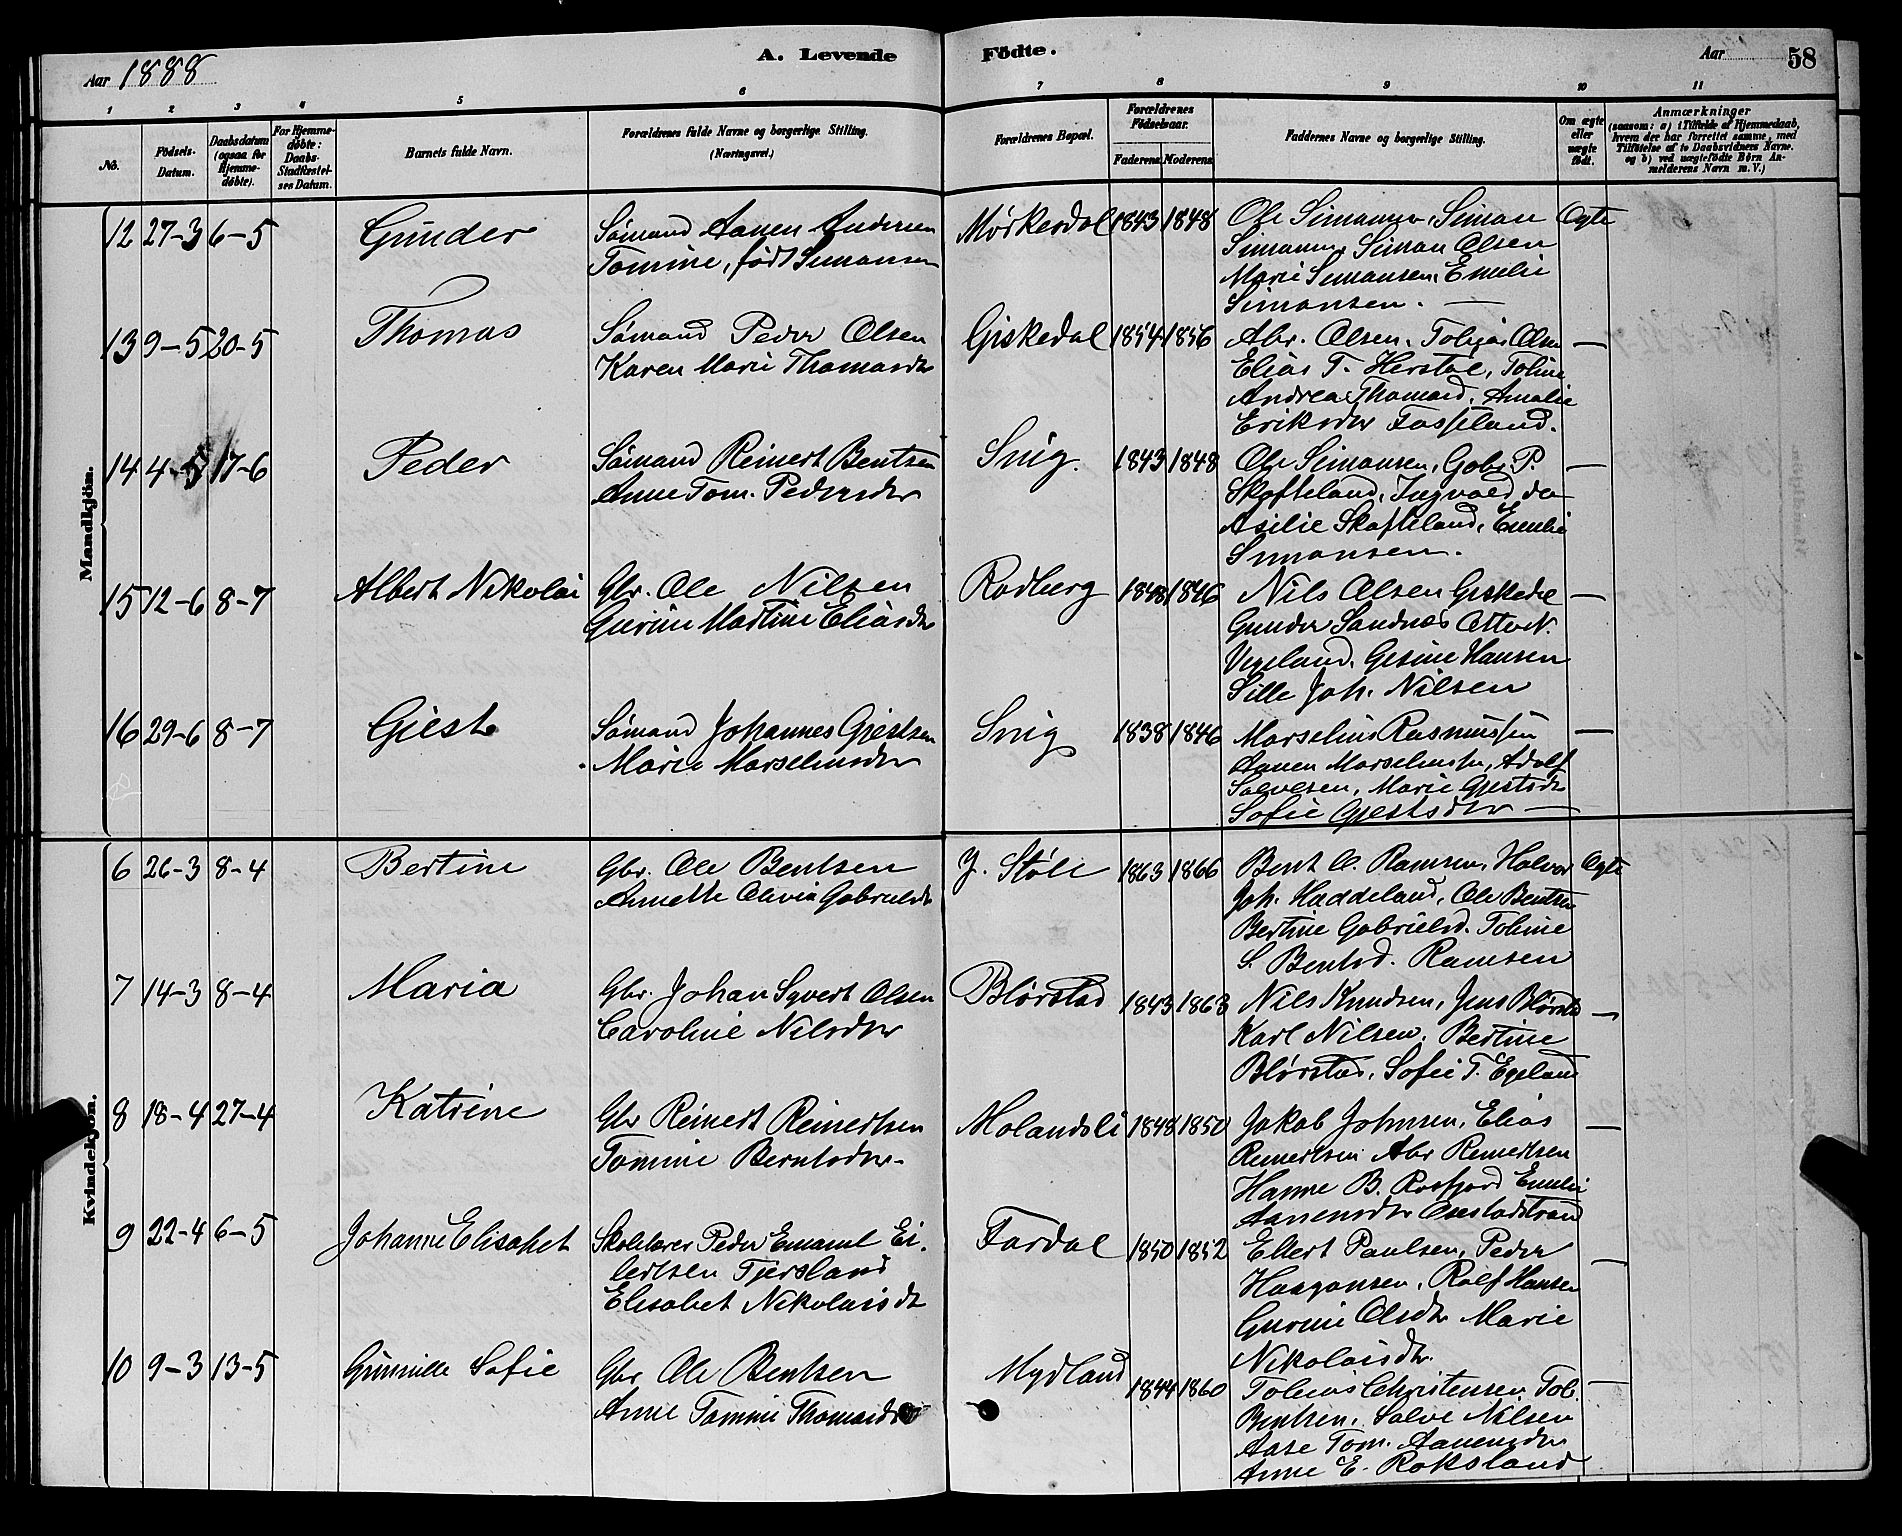 Aar 1888
A. Levende Födte.
Aar 58
1 2 3 4 5 6 7 8 9 10 11
No.
Födsels-Datum.
Daabsdatum (ogsaa for Hjemme-døbte).
For Hjemme-døbte: Daabs-Stadfæstel-ses Datum.
Barnets fulde Navn.
Forældrenes fulde Navne og borgerlige Stilling. (Næringsvei.)
Forældrenes Bopæl.
Forældrenes Födselsaar.
Faderens Moderens
Faddernes Navne og borgerlige Stilling.
Om ægte eller uægte født.
Anmærkninger
(saasom: a) i Tilfælde af Hjemmedaab,
hvem der har forrettet samme, med
Tilföielse af to Daabsvidners Navne.
og b) ved uægtefödte Börn An-
melderens Navn m. V.)
Mandkjön.
12 27-3 6-5 Gunder Sømand Aanen Andersen Mørkesdal 1843 1848 Ole Simonsen, Simon Ægte
Tomine, født Simonsen Simonsen, Simon Olsen
Marie Simonsen, Emelie
Simonsen.
13 9-5 20-5 Thomas Sømand Peder Olsen Giskedal 1854 1856 Abr. Olsen, Tobias Olsen —
Karen Marie Thomasdtr Elias T. Herstøl, Toline
Andrea Thomasd. Amalie
Eriksdtr Fasseland.
14 4-5 17-6 Peder Sømand Reinert Bentsen Snig. 1843 1848 Ole Simonsen, Gabr. P. —
Anne Tom. Pedersdtr Skofteland, Ingvald do
Asilie Skofteland, Emelie
Simonsen.
15 12-6 8-7 Albert Nikolai Gbr. Ole Nilsen Rødberg 1848 1846 Nils Olsen Giskedal —
Gurine Martine Eliasdtr Gunder Sandnæs Otto N.
Vigeland, Gesine Hansen
Sille Joh. Nilsen
16 29-6 8-7 Giest Sømand Johannes Gjestsen Snig 1838 1846 Marselius Rasmussen —
Marie Marseliusdtr Aanen Marseliussen, Adolf
Salvesen, Marie Gjestsdtr
Sofie Gjestsdtr —
Kvindekjön.
6 26-3 8-4 Bertine Gbr. Ole Bentsen Y. Støle 1863 1866 Bent O. Ramsen, Halvor Ægte
Annette Olivia Gabrielsdtr Joh. Haddeland, Ole Bentsen
Bertine Gabrielsd. Toline
S. Bentsd. Ramsen
7 14-3 8-4 Maria Gbr. Johan Syvert Olsen Blørstad 1843 1863 Nils Knudsen, Jens Blørstad —
Caroline Nilsdtr Karl Nilsen, Bertine
Blørstad, Sofie T. Egeland
8 18-4 27-4 Katrine Gbr Reinert Reinertsen Molandsli 1848 1850 Jakob Johnsen, Elias —
Tomine Berntsdtr. Reinertsen Abr Reinertsen
Hanne B. Rosfjord Emelie
Aanensdtr
9 22-4 6-5 Johanne Elisabet Skolelærer Peder Emanl Ei- Fardal 1850 1852 Ellert Paulsen, Peder —
lertsen Tjersland Haagonsen, Rolf Hansen
Elisabet Nikolaisdt Gurine Olsdtr Marie
Nikolaisdtr.
10 9-3 13-5 Gunnille Sofie Gbr Ole Bentsen Mydland 1844 1860 Tobias Christensen, Tob. —
Anne Tomine Thomasdtr Bentsen, Salve Nilsen
Aase Tom. Aanensdtr
Anne E. Roksland